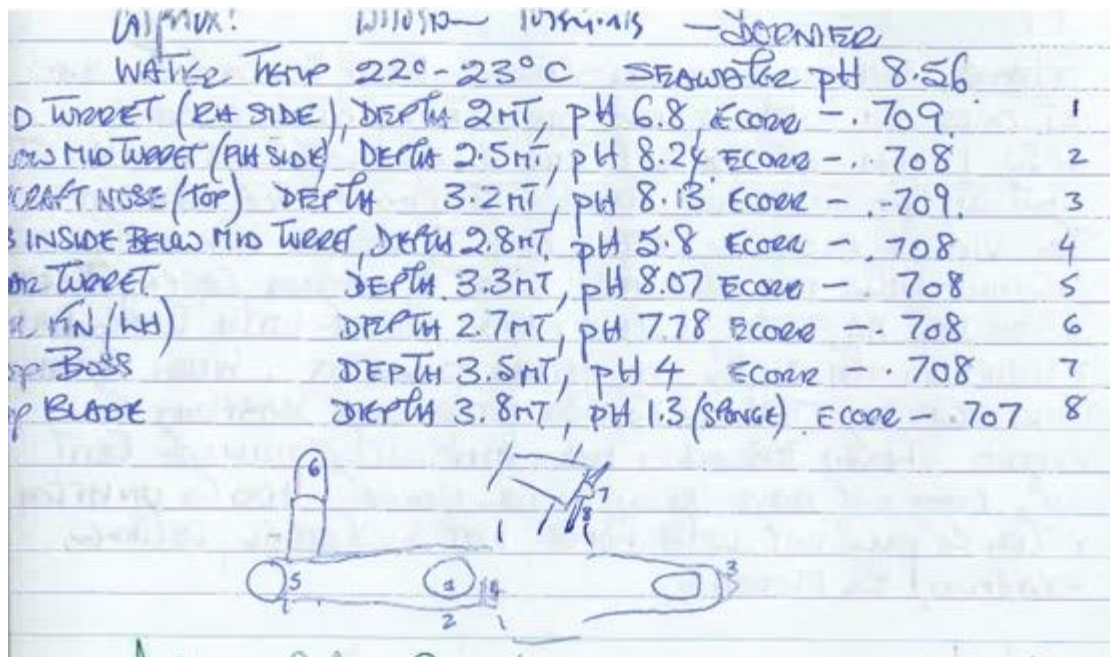 — DORNIER
WATER TEMP 22° - 23°C SEAWATER pH 8.56
D TURRET (RH SIDE), DEPTH 2MT, pH 6.8, ECORR - .709. 1
OW MID TURRET (RH SIDE) DEPTH 2.5MT, pH 8.24, ECORR - .708 2
CRAFT NOSE (TOP) DEPTH 3.2MT, pH 8.13 ECORR - .-709. 3
INSIDE BELOW MID TURRET, DEPTH 2.8MT, pH 5.8 ECORR - .708 4
AR TURRET DEPTH 3.3MT, pH 8.07 ECORR - .708 5
FIN (LH) DEPTH 2.7MT, pH 7.78 ECORR - .708 6
OP BOSS DEPTH 3.5MT, pH 4 ECORR - .708 7
OP BLADE DEPTH 3.8MT, pH 1.3 (SPONGE) ECORR - .707 8
6
7
8
5 1 4 3
2